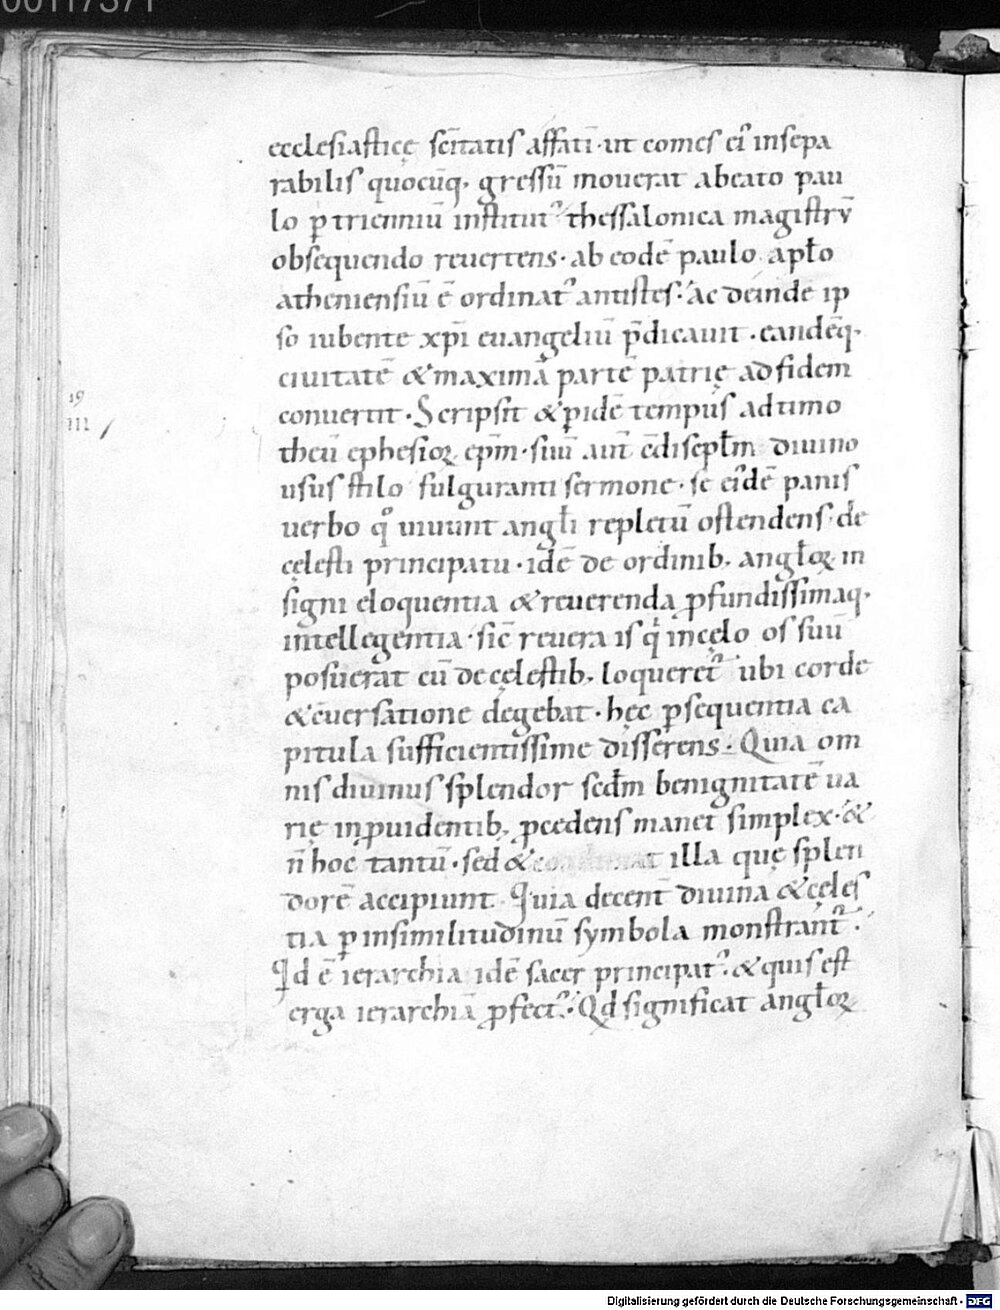 00117371
ecclesiasticę sc̄itatis affati· ut comes ei᾽ insepa
rabilis quocūq, gressū mouerat abeato pau
lo p̱ trienniū institut᾽ thessalonica magistrū
obsequendo reuertens· ab eodē paulo apło
atheniensiū ē ordinat᾽ antistes· ac deinde ip
so iubente xp̄i euangeliū p̄dicauit· eandēq,
ciuitatē & maximā partē patrię ad fidem
19
conuertit· Scripsit & p̱ idē tempus ad timo
III
theū ephesioꝝ ep̄m· siuī aut̄ c̄discipłm diuino
usus stilo fulguranti sermone· se ei᾽dē panis
uerbo qͦ uiuunt angłi repletū ostendens· de
cęlesti principatu· idē de ordinib, angłoꝝ in
signi eloquentia & reuerenda ꝓfundissimaq,
intellegentia· sic̄ reuera is qi in cęlo os suū
posuerat cū de cęlestib, loqueret᾽ ubi corde
& c̄uersatione degebat· hęc p̱sequentia ca
pitula sufficientissime disserens· Quia om
nis diuinus splendor scd̄m benignitatē ua
rię in ꝓuidentib, ꝓcedens manet simplex· &
n̄ hoc tantū· sed & illa quę splen
dorē accipiunt· Quia decent᾽ diuina & cęles
tia p̱ insimilitudinū symbola monstrant᾽·
Qd ē ierarchia idē sacer principat᾽· & quis est
erga ierarchiā ꝓfect᾽· Qd significat angłoꝝ
Digitalisierung gefördert durch die Deutsche Forschungsgemeinschaft - DFG